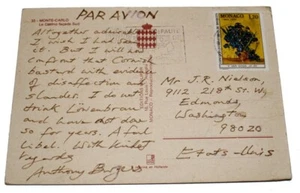 PAR AVION
MONTE-CARLO
Le Casino
MONACO
1,30
Altogether admirable
I wish I had said
it. But I will
confront that Cornish
bastard with evidence
of disaffection and
slander. I do not
drink Löwenbrau
and have not done
so for years. A foul
libel. With kindest
regards
Anthony Burgess
Mr J.R. Nielson,
9112 218th St. W,
Edmonds,
Washington
98020
Etats-Unis